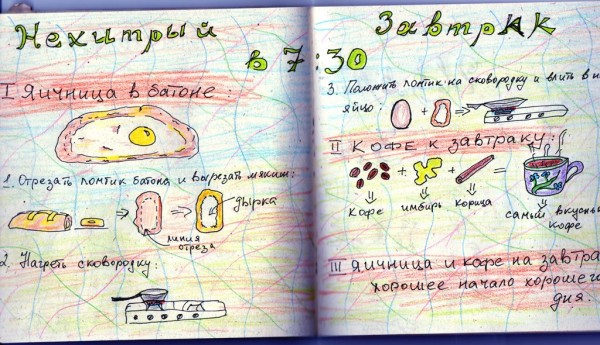 Нехитрый
Завтрак
в 7:30
I Яичница в батоне:
1. Отрезать ломтик батона и вырезать мякиш:
дырка
линия
отреза
2. Нагреть сковородку:
3. Положить ломтик на сковородку и влить в н
яйцо:
II Кофе к завтраку:
кофе
имбирь
корица
самый вкусный
кофе
III Яичница и кофе на завтра
хорошее начало хорошего
дня.